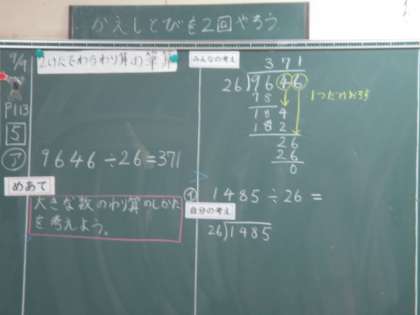 かえしとびを2回やろう
9/9
P113
5
ア
2けたでわるわり算の筆算
9646÷26=371
めあて
大きな数のわり算のしかた
を考えよう。
みんなの考え
371
26)9646
78
184
182
26
26
0
1つだけおろす
イ 1485÷26=
自分の考え
26)1485